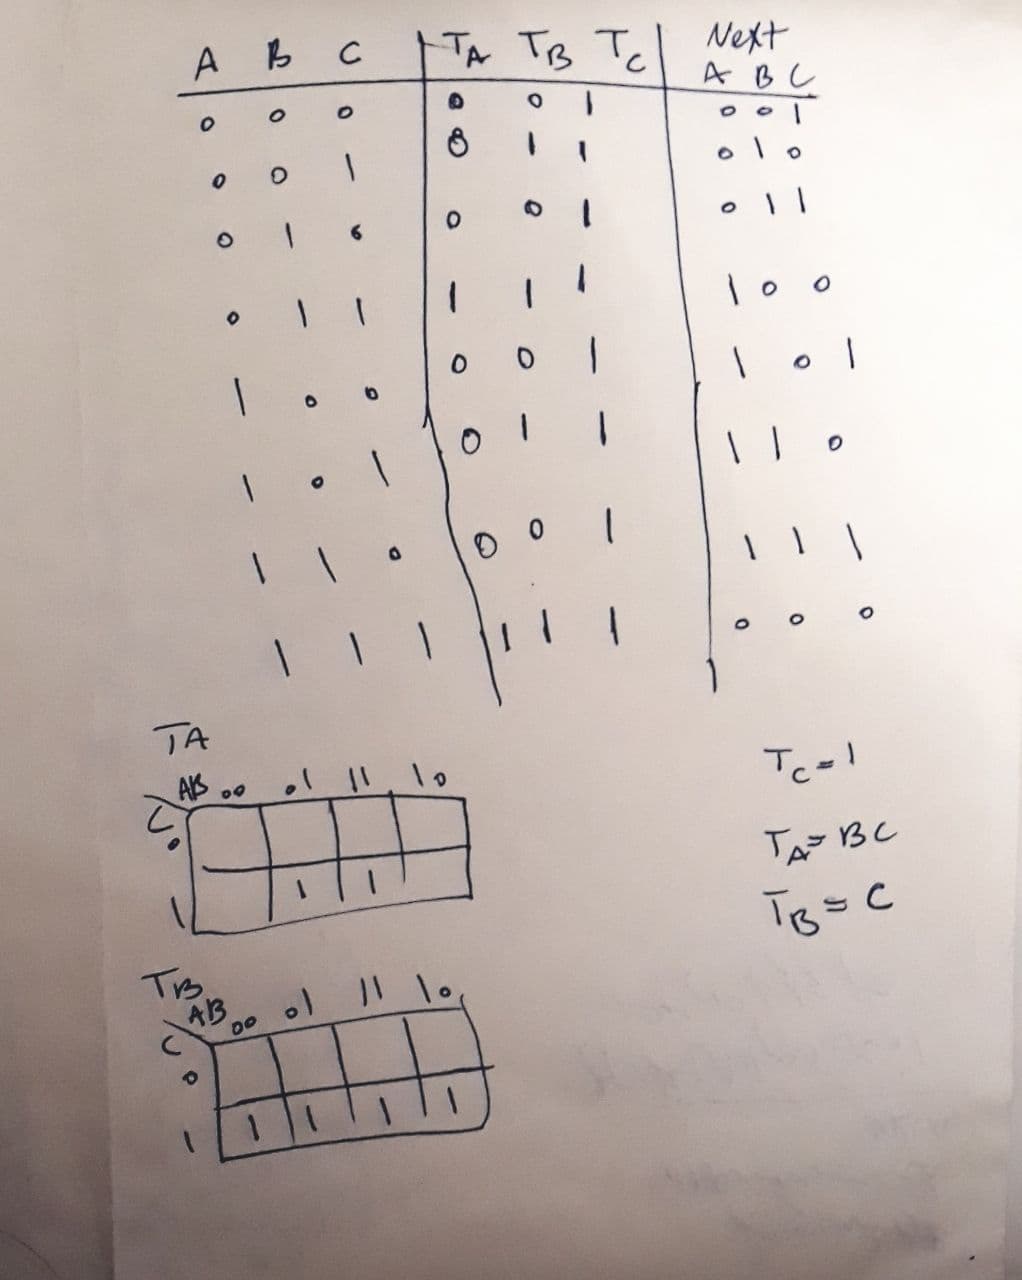 A B C TA TB TC Next
A B C
0 0 0 0 0 1 0 0 1
0 0 1 0 1 1 0 1 0
0 1 0 0 0 1 0 1 1
0 1 1 1 1 1 1 0 0
1 0 0 0 0 1 1 0 1
1 0 1 0 1 1 1 1 0
1 1 0 0 0 1 1 1 1
1 1 1 1 1 1 0 0 0
TA
AB 00 01 11 10
C
0
1 1 1
TC = 1
TA = BC
TB = C
TB
AB 00 01 11 10
C
0
1 1 1 1 1